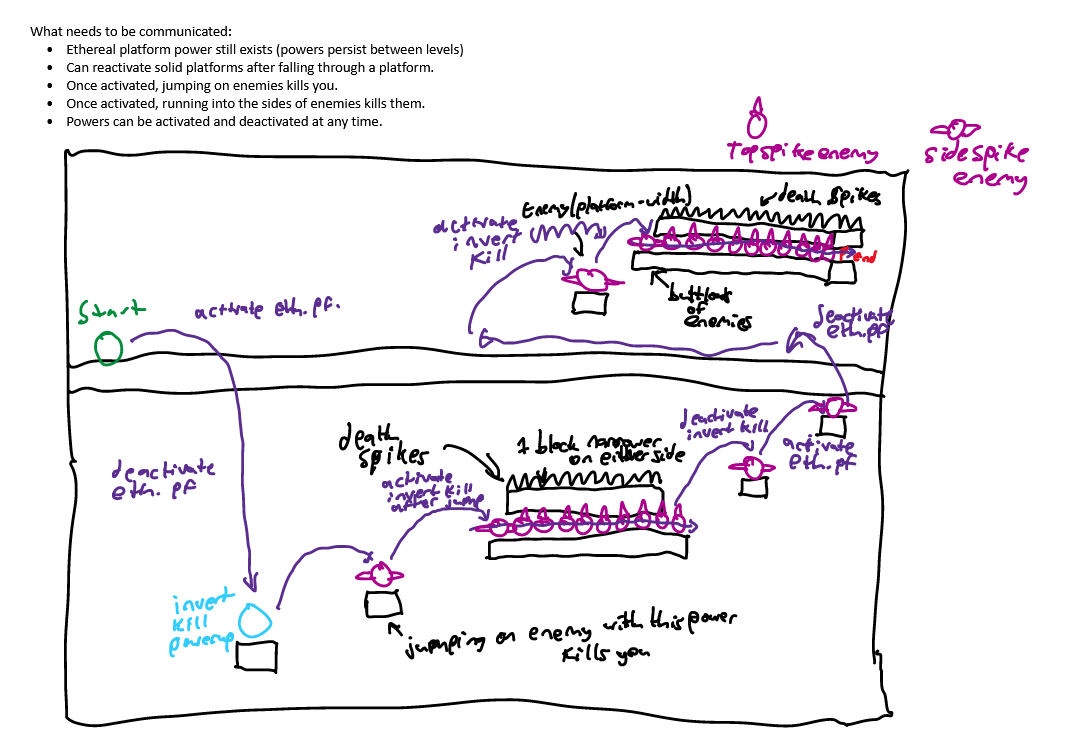 What needs to be communicated:
• Ethereal platform power still exists (powers persist between levels)
• Can reactivate solid platforms after falling through a platform.
• Once activated, jumping on enemies kills you.
• Once activated, running into the sides of enemies kills them.
• Powers can be activated and deactivated at any time.
Top spike enemy
side spike
enemy
death spikes
Enemy (platform-width)
activate
invert
kill
end
buttload
of
enemies
Start
activate eth. pf.
Deactivate
eth. pf
death
spikes
1 block narrower
on either side
deactivate
invert kill
activate
eth. pf
activate
invert kill
after jump
deactivate
eth. pf
invert
kill
powerup
jumping on enemy with this power
kills you